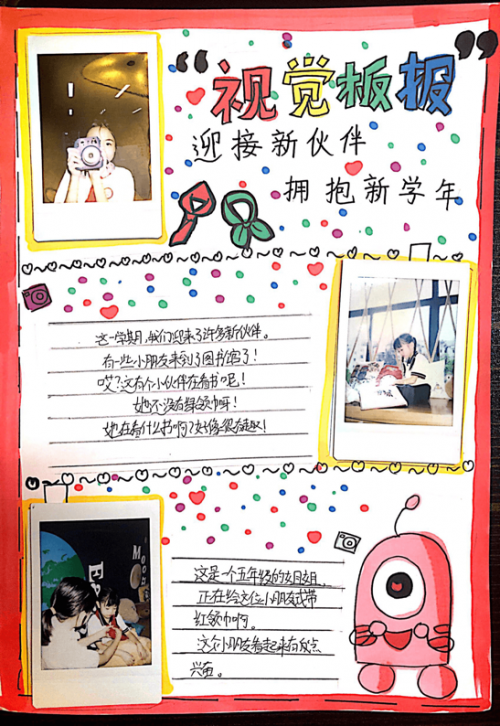 “视觉板报”
迎接新伙伴
拥抱新学年
这一学期,我们迎来了许多新伙伴。
有一些小朋友来到了图书馆了!
哎?这有个小伙伴在看书呢!
她还没有绿领巾呀!
她在看什么书啊?好像很有趣!
Moon
这是一个五年级的姐姐,
正在给这位小朋友戴
红领巾啊。
这个小朋友看起来有点
兴奋。